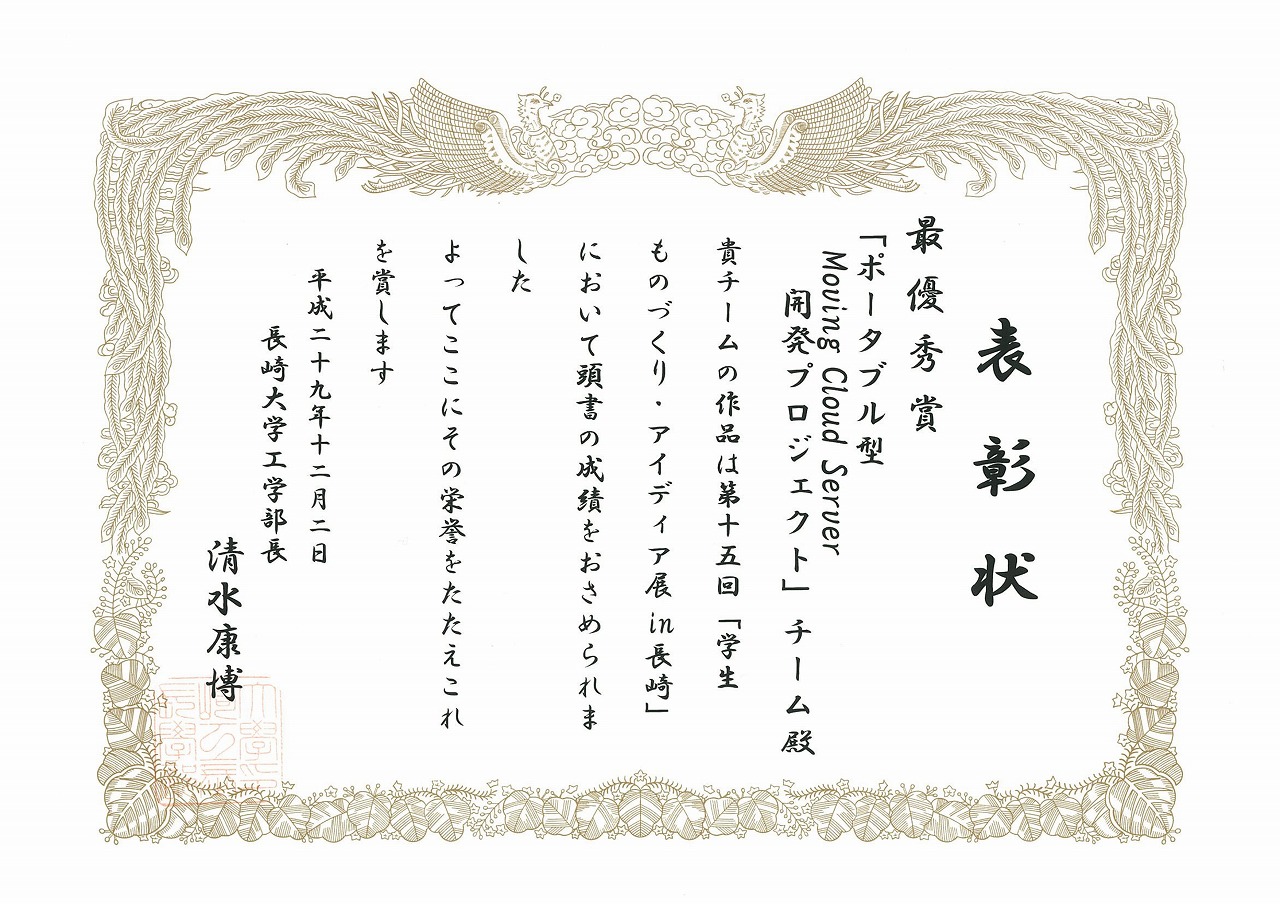 表彰状
最優秀賞
「ポータブル型
Moving Cloud Server
開発プロジェクト」チーム殿
貴チームの作品は第十五回「学生
ものづくり・アイディア展in長崎」
において頭書の成績をおさめられま
した
よってここにその栄誉をたたえこれ
を賞します
平成二十九年十二月二日
長崎大学工学部長
清水康博